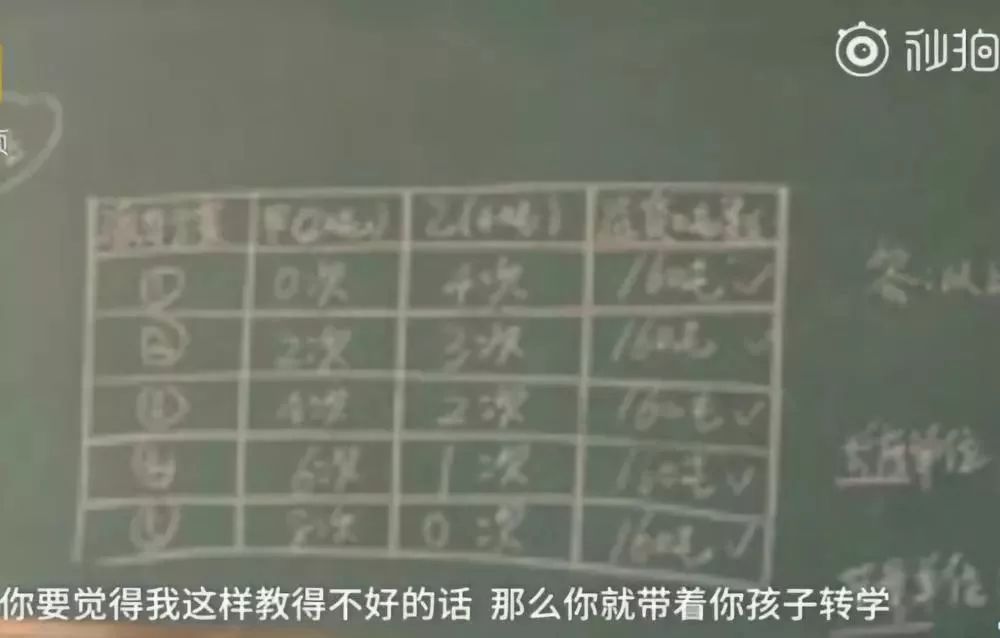 秒拍
页
甲(20吨) 乙(40吨)
① 0次 4次 160吨 ✓
② 2次 3次 160吨 ✓
③ 4次 2次 160吨 ✓
④ 6次 1次 160吨 ✓
⑤ 8次 0次 160吨 ✓
答:
单位
单位
你要觉得我这样教得不好的话 那么你就带着你孩子转学